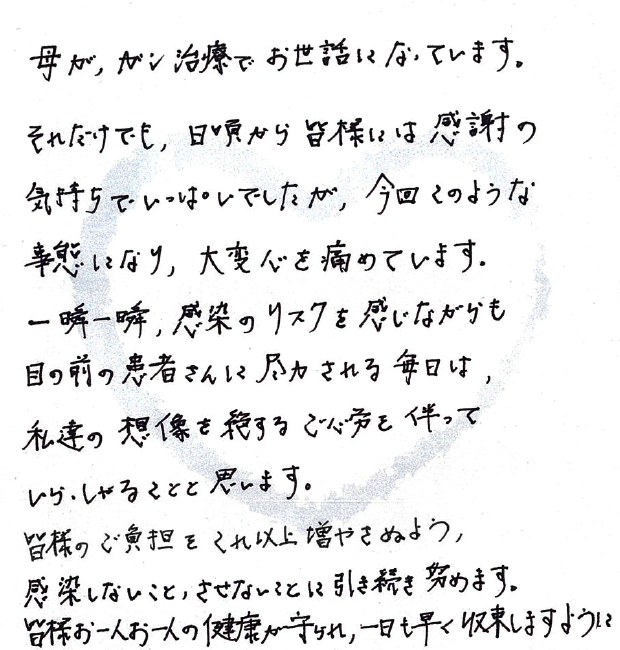 母が、ガン治療でお世話になっています。
それだけでも、日頃から皆様には感謝の
気持ちでいっぱいでしたが、今回このような
事態になり、大変心を痛めています。
一瞬一瞬、感染のリスクを感じながらも
目の前の患者さんに尽力される毎日は、
私達の想像を絶するご心労を伴って
いらっしゃることと思います。
皆様のご負担をこれ以上増やさぬよう、
感染しないこと、させないことに引き続き努めます。
皆様お一人お一人の健康が守られ、一日も早く収束しますように